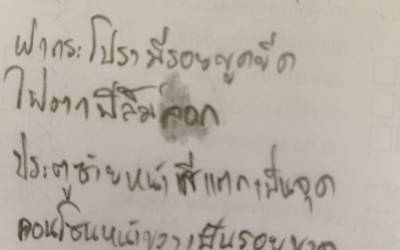 ฝากระโปรามีรอยขูดขีด
ไฟตาฟิล์มลอก
ประตูซ้ายหน้าสีแตกเป็นจุด
คอนโซนหน้าขวาเป็นรอยขาด